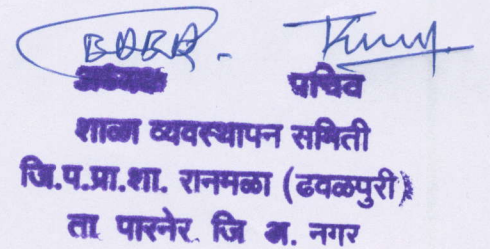 अध्यक्ष सचिव
शाळा व्यवस्थापन समिती
जि.प.प्रा.शा. रानमळा (ढवळपुरी)
ता पारनेर जि अ. नगर